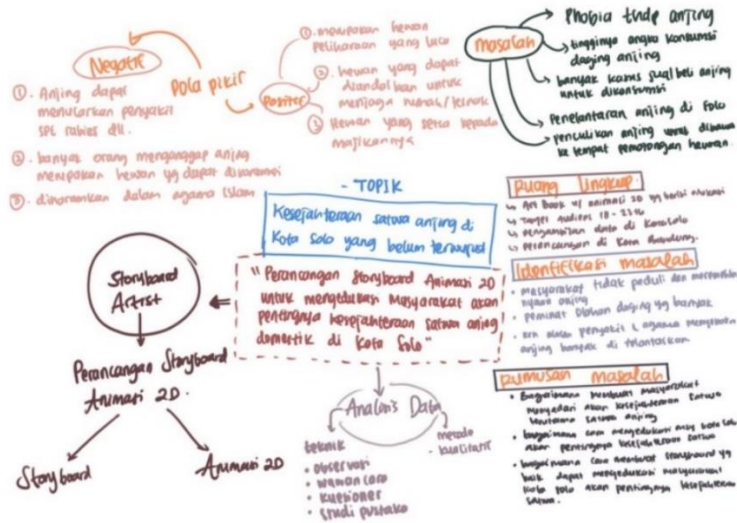 Negatif
Pola pikir
Positif
①. Anjing dapat
menularkan penyakit
spt rabies dll.
② banyak orang menganggap anjing
merupakan hewan yg dapat dikonsumsi
③. diharamkan dalam agama Islam
①. merupakan hewan
peliharaan yang lucu
②. hewan yang dapat
diandalkan untuk
menjaga rumah/ternak
③ Hewan yang setia kepada
majikannya
Masalah
Phobia thdp anjing
tingginya angka konsumsi
daging anjing
banyak kasus jual beli anjing
untuk dikonsumsi
Penelantaran anjing di Solo
penculikan anjing untuk dibawa
ke tempat pemotongan hewan.
- TOPIK
Kesejahteraan satwa anjing di
Kota Solo yang belum terwujud
"Perancangan Storyboard Animasi 2D
untuk mengedukasi Masyarakat akan
pentingnya kesejahteraan satwa anjing
domestik di Kota Solo"
Storyboard
Artist
Perancangan Storyboard
Animasi 2D.
Storyboard
Animasi 2D
Analisis Data
teknik
• observasi
• wawancara
• kuesioner
• studi pustaka
- metode
kualitatif
Ruang lingkup
Art Book w/ animasi 2D yg berisi
Target Audiens 18-23th
Pengambilan data di Kota Solo
Perancangan di Kota Bandung.
Identifikasi masalah
• masyarakat tidak peduli dan
anjing
• peminat olahan daging yg banyak
• krn alasan penyakit & agama
anjing banyak di telantarkan
Rumusan masalah
• Bagaimana membuat masyarakat
menyadari akan kesejahteraan satwa
terutama satwa anjing
• bagaimana cara mengedukasi kota solo
akan pentingnya kesejahteraan satwa
• bagaimana cara membuat storyboard yg
baik dapat mengedukasi masyarakat
kota solo akan pentingnya kesejahteraan
satwa.